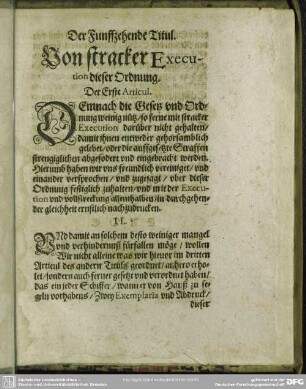 Der Funffzehende Titul.
Von stracker Execu-
tion dieser Ordnung.
Der Erste Articul.
DEmnach die Gesetz vnd Ord-
nung wenig nütz/ so ferne mit stracker
Execution darüber nicht gehalten/
damit ihnen entweder gehorsamblich
gelebet/ oder die auffgesetzte Straffen
strengiglichen abgefodert vnd eingebracht werden.
Hierumb haben wir vns freundlich vereiniget/ vnd
einander versprochen/ vnd zugesagt/ vber dieser
Ordnung festiglich zuhalten/ vnd mit der Execu-
tion vnd vollstreckung allenthalben/ in durchgehen-
der gleichheit ernstlich nachzudrucken.
II.
VNd damit an solchem desto weiniger mangel
vnd verhinderniß fürfallen möge/ wollen
Wir nicht alleine was wir hievor im dritten
Articul des andern Tituls geordnet/ anhero erho-
let/ sondern auch ferner gesetzt vnd verordnet haben/
das ein jeder Schiffer/ wann er von Hauß zu se-
geln vorhabens/ Zwey Exemplaria vnd Abdruck/
dieser